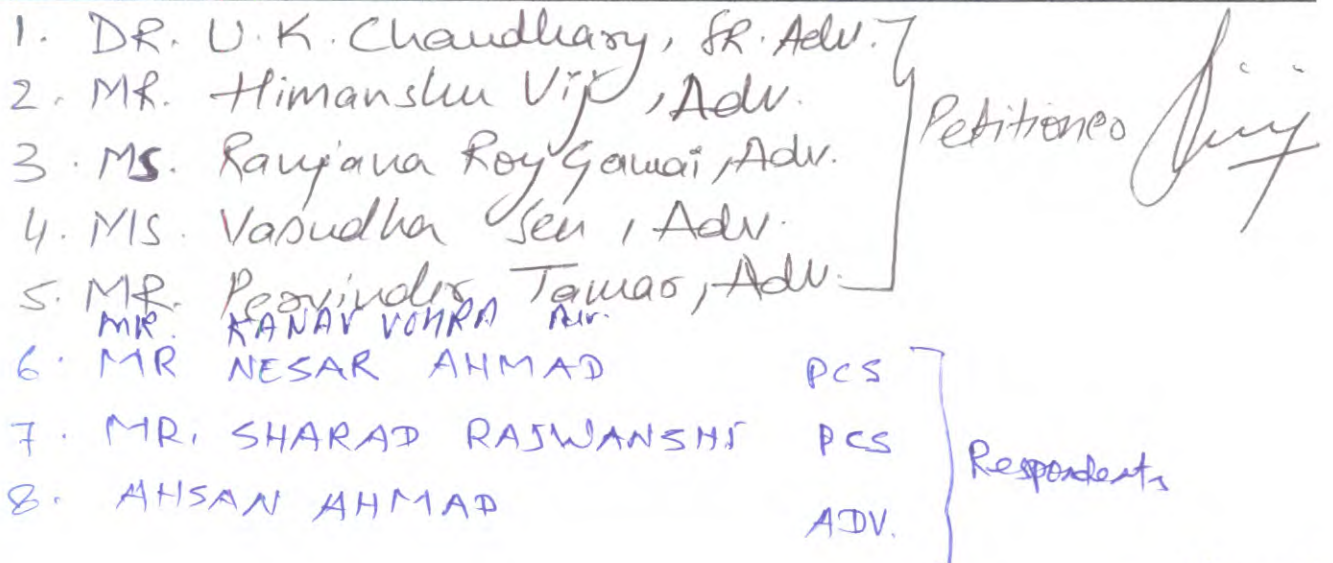 1. DR. U.K. Chaudhary, SR. Adv.
2. MR. Himanshu Vij, Adv.
3. MS. Ranjana Roy Gawai, Adv.
4. MS. Vasudha Sen, Adv.
5. MR. Pervinder Tanwar, Adv.
Petitioner
MR. KANAV VOHRA Adv.
6. MR NESAR AHMAD PCS
7. MR. SHARAD RAJWANSHI PCS
8. AHSAN AHMAD ADV.
Respondents